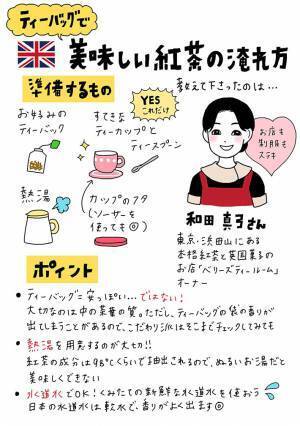 ティーバッグで
美味しい紅茶の淹れ方
準備するもの
YES
これだけ
教えて下さったのは…
お好みの
ティーバッグ
すてきな
ティーカップと
ティースプーン
お店も
制服も
ステキ
熱湯
カップのフタ
(ソーサーを
使っても◎)
和田 真弓さん
東京・浜田山にある
本格紅茶と英国菓子の
お店「ベリーズティールーム」
オーナー
ポイント
• ティーバッグ=安っぽい…ではない!
大切なのは中の茶葉の質。ただし、ティーバッグの袋の香りが
出てしまうことがあるので、こだわり派はそこまでチェックしてみても
• 熱湯を用意するのが大切!!
紅茶の成分は98℃くらいで抽出されるので、ぬるいお湯だと
美味しくできない
• 水道水でOK! くみたての新鮮な水道水を使おう
日本の水道水は軟水で、香りがよく出ます◎